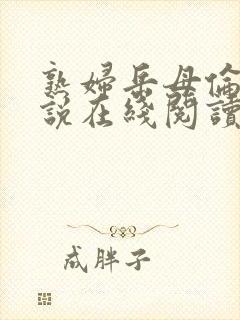 熟婦岳母倫
說在綫閱讀
成胖子